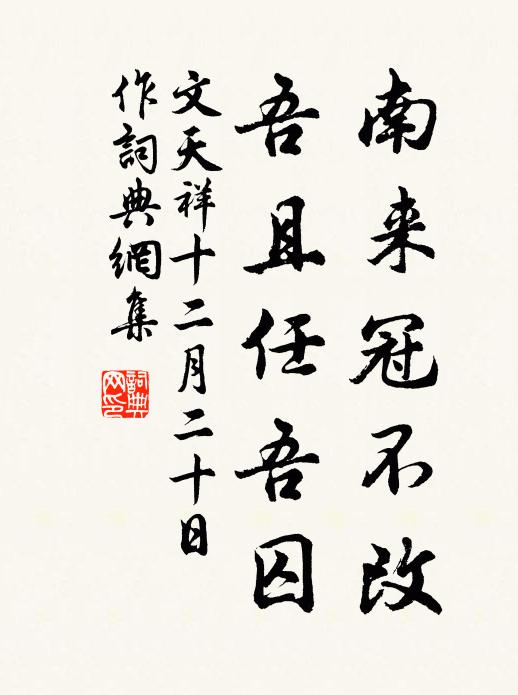 南来冠不改
吾且任吾囚
文天祥十二月二十日
作詞典網集
詞典网印